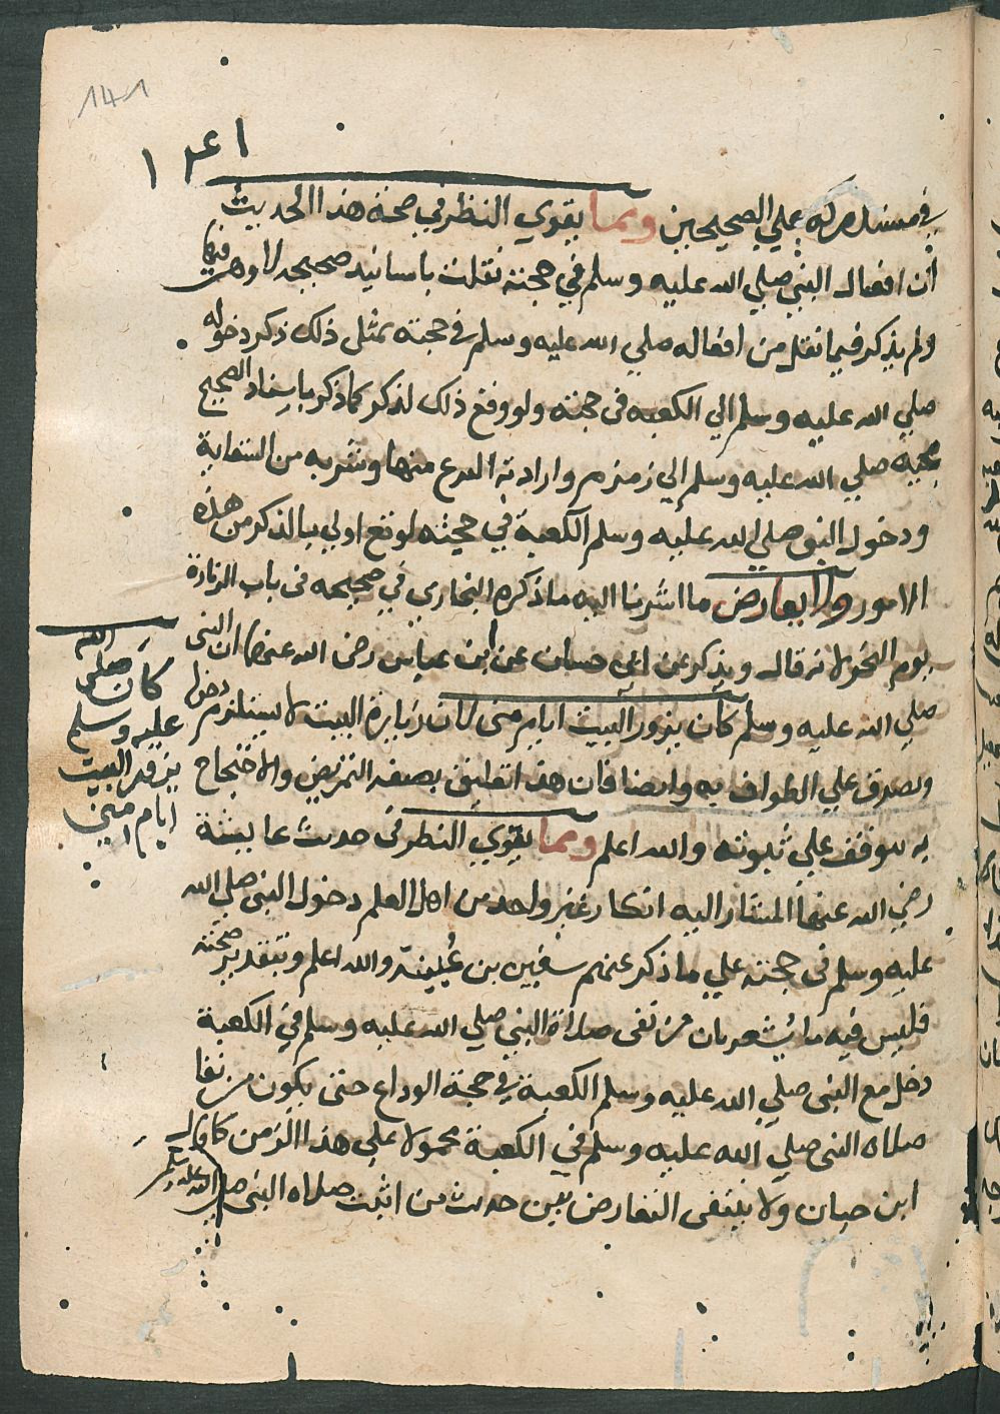 141
١٤١
في مستدركه علي الصحيحين ومما يقوي النظر في صحة هذا الحديث
أن افعال النبي صلي الله عليه وسلم في حجته نقلت باسانيد صحيحة لا وهن فيها
ولم يذكر فيما نقل من افعاله صلي الله عليه وسلم في حجته بمثل ذلك ذكر دخوله
صلي الله عليه وسلم الي الكعبه في حجته ولو وقع ذلك لذكر كما ذكر باسناد الصحيح
مجيه صلي الله عليه وسلم الي زمزم وارادته النزع منها وشربه من السقاية
ودخول النبي صلي الله عليه وسلم الكعبة في حجته لو وقع اولي بالذكر من هذه
الامور ولا يعارض ما اشرنا اليه ما ذكره البخاري في صحيحه في باب الزيارة
يوم النحر لانه قال ويذكر عن ابي حسان عن ابن عباس رضي الله عنهما ان النبي
صلي الله عليه وسلم كان يزور البيت ايام مني لان زيارة البيت لا يستلزم دخوله
ويصدق علي الطواف به وايضا فان هذا تعليق بصيغه التمريض والاحتجاج
به يتوقف علي ثبوته والله اعلم ومما يقوي النظر في حديث عايشة
رضي الله عنها المشار اليه انكار غير واحد من اهل العلم دخول النبي صلي الله
عليه وسلم في حجته علي ما ذكر عنهم سفين بن عُيينة والله اعلم وبتقدير صحته
فليس فيه ما يُشعر بان من نفى صلاة النبي صلي الله عليه وسلم في الكعبة
دخل مع النبي صلي الله عليه وسلم الكعبة في حجة الوداع حتى يكون من نفا
صلاه النبي صلي الله عليه وسلم في الكعبة محمولا علي هذا الزمن كما قال
ابن حبان ولا ينتفى التعارض بين حديث من اثبت صلاه النبي صلي الله عليه وسلم
كان صلي الله
عليه وسلم
يزور البيت
ايام منى